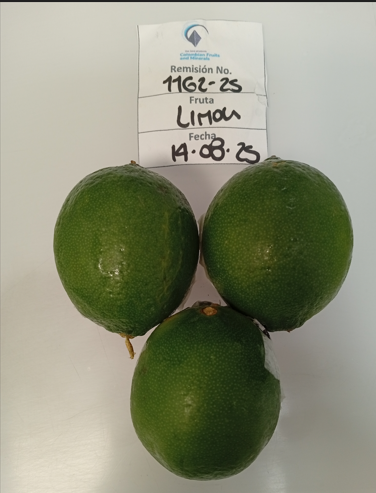 Colombian Fruits
and Minerals
Remisión No.
1162-25
Fruta
LIMON
Fecha
14.08.25